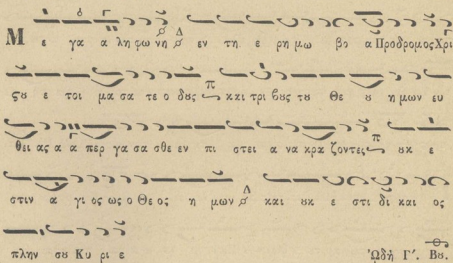 Μ ε γα α λη φω νη εν τη ε ρη μω βο α Πρόδρομος Χρι
ϛȣ ε τοι μα σα τε ο δȣς και τρι βȣς τȣ Θε ȣ η μων ευ
θει ας α α περ γα σα σθε εν πι στει α να κρα ζοντες ȣκ ε
στιν α γι ος ως ο Θε ος η μων και ȣκ ε στι δι και ος
πλην σȣ Κυ ρι ε Ὠδὴ Γ΄. Βȣ.